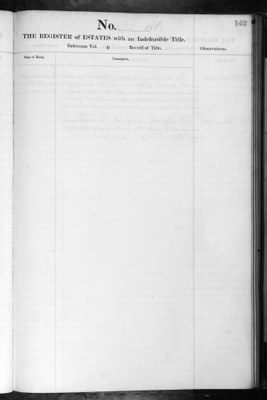 142
No.
THE REGISTER of ESTATES with an Indefeasible Title.
Indexuum Vol. p Record of Title.
Observations.
Date of Entry.
Description.